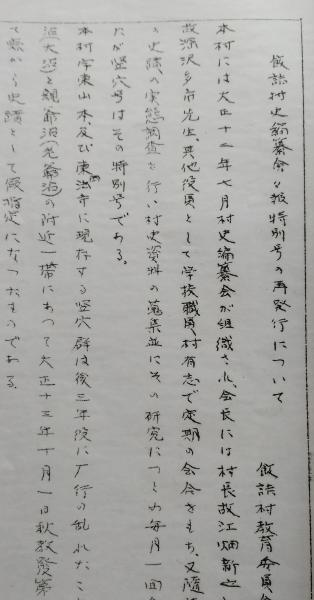 飯詰村史編纂会々報特別号の再発行について
飯詰村教育委員会
本村には大正十二年七月村史編纂会が組織され、会長には村長故江畑新之
故深沢多市先生、其他役員として学校職員、村有志で定期の会合をもち、又随
史蹟の実態調査を行い村史資料の蒐集並にその研究につとめ毎月一回会
たが竪穴号はその特別号である。
本村字東山本及び東法寺に現存する竪穴群は後三年役に厂行の乱れたこ
沼(大沼)と親爺沼(老爺沼)の附近一帯にあつて大正十三年十月一日秋教発第
て縣から史蹟として仮指定になつたものである。